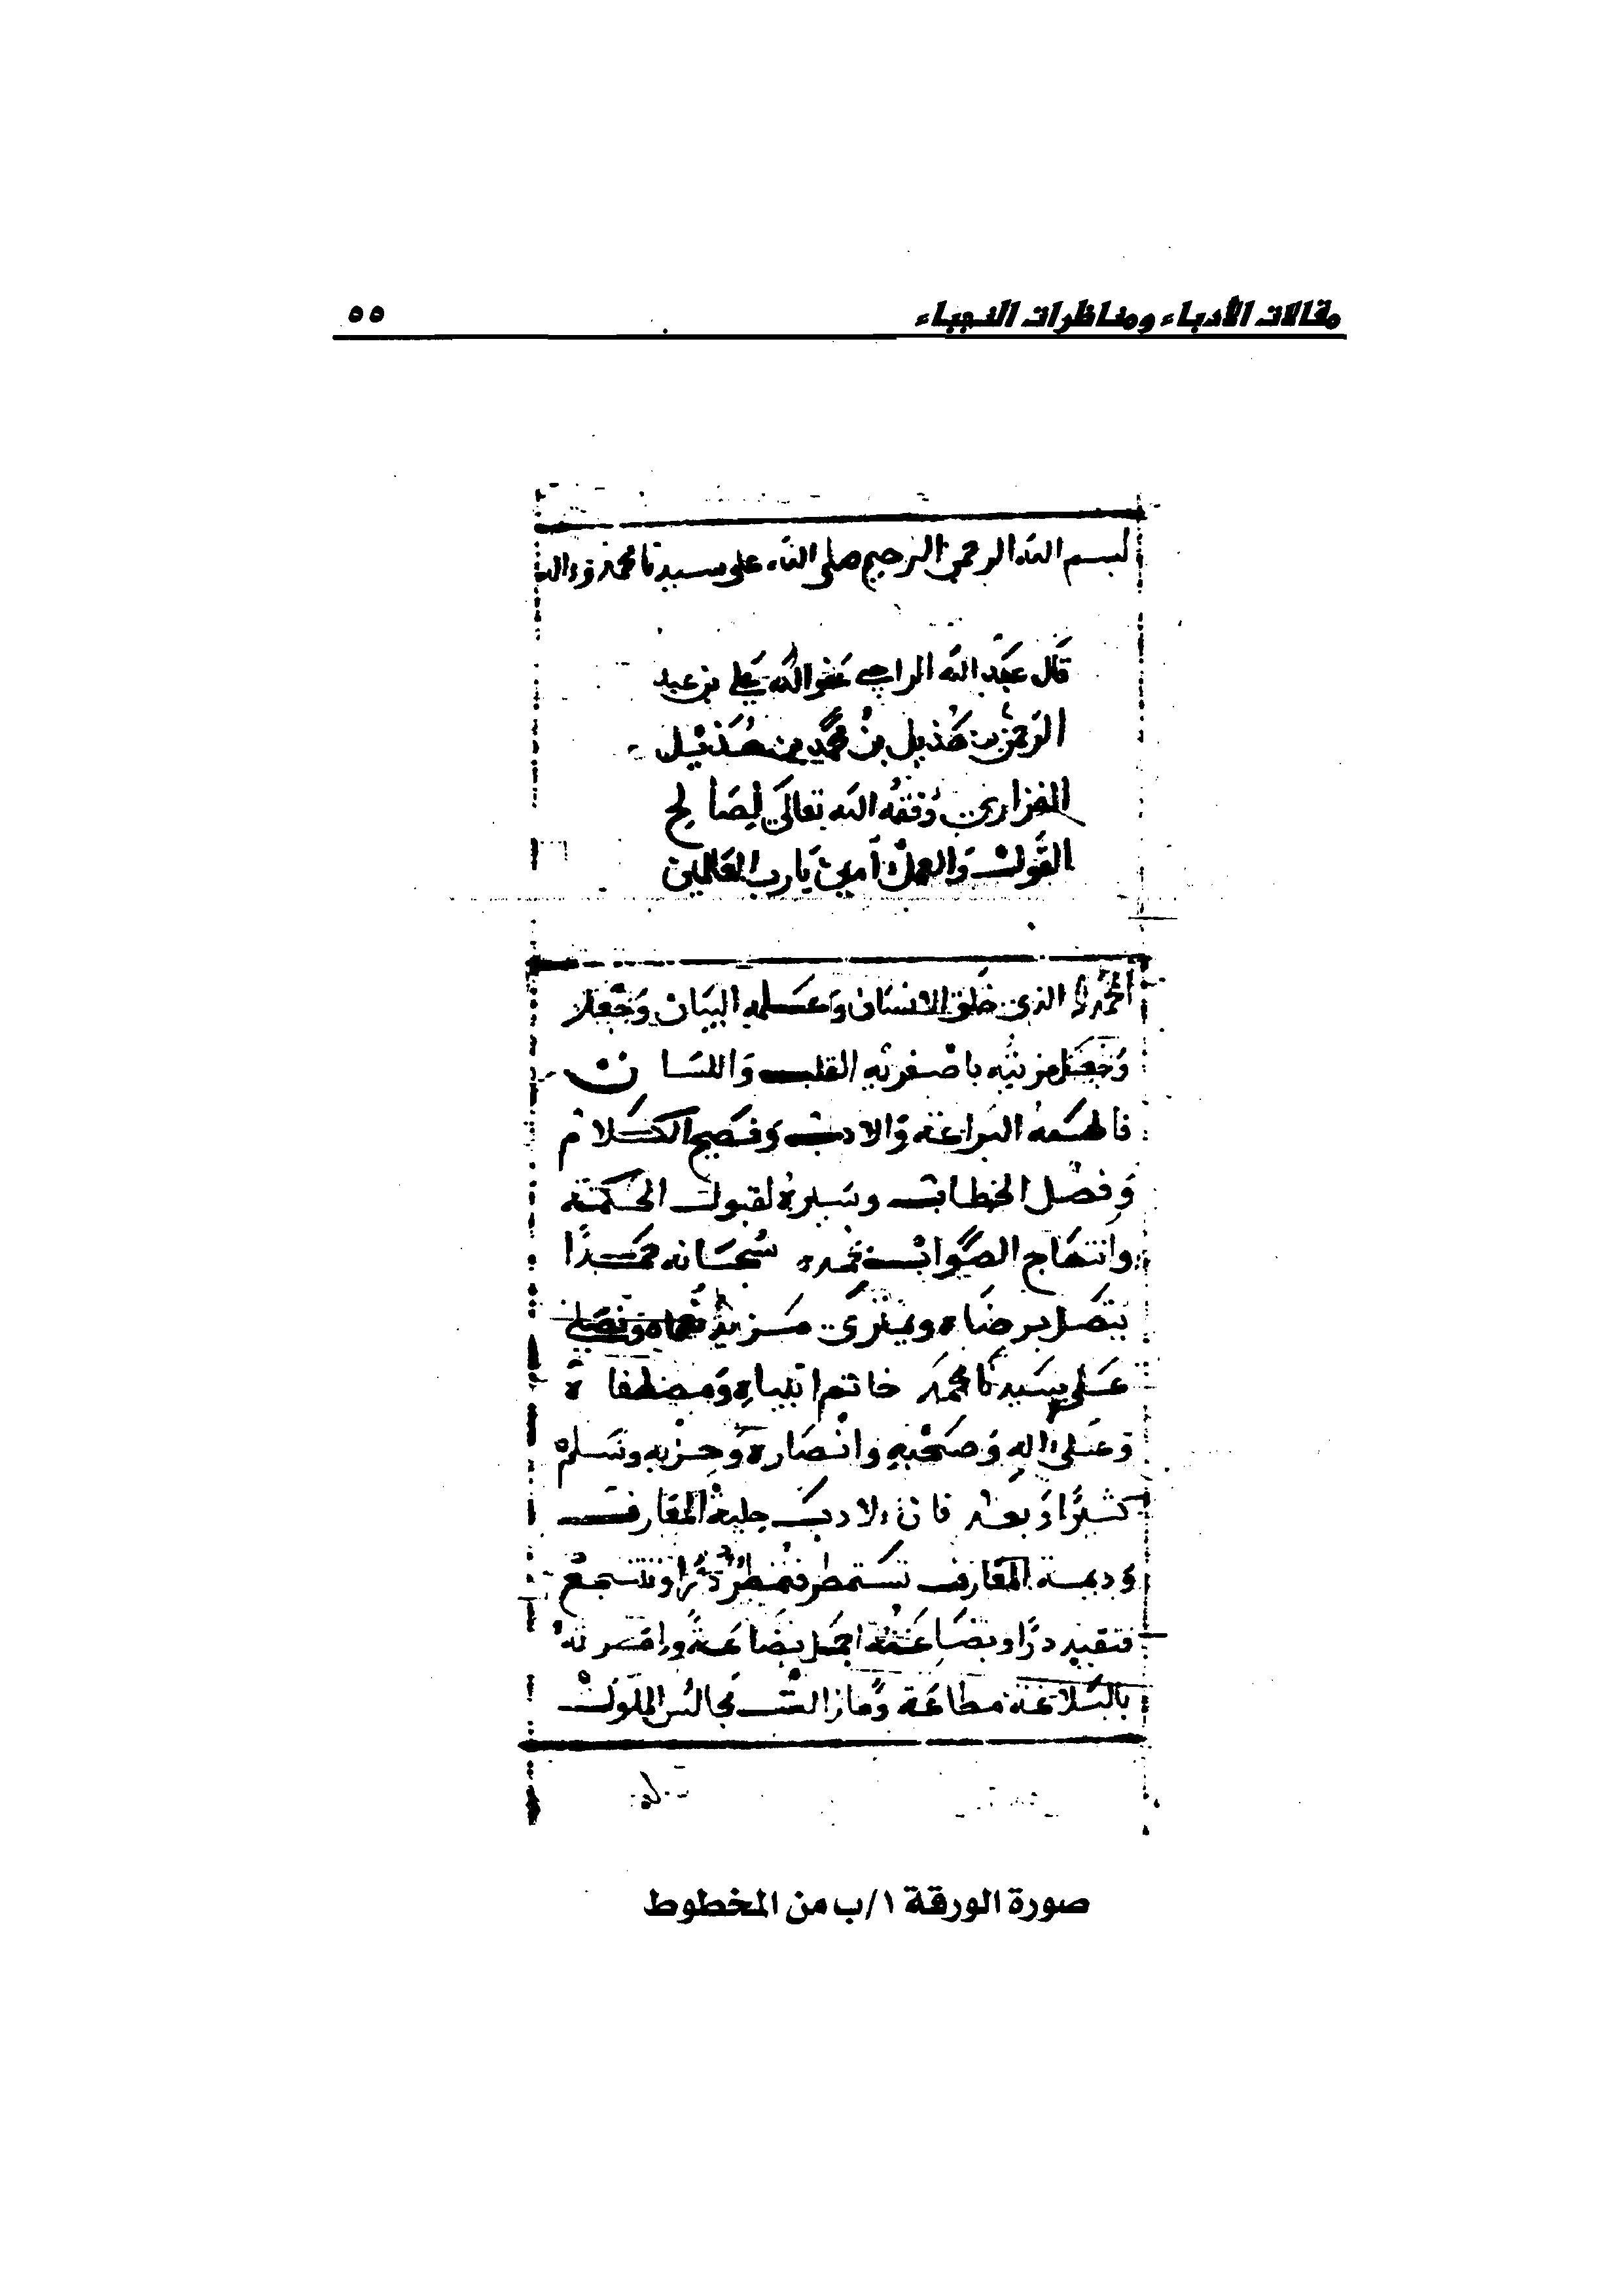 مقالات الأدباء ومناظرات النجباء
٥٥
بسم الله الرحمن الرحيم صلى الله على سيدنا محمد وءاله
قَال عَبْد الله الراجي عَفو الله عَلي بن عبد
الرَّحمن بن هُذيل بنُ محمَّد بن هُذَيْل
الفزاري وَفقهُ الله تعالَى لِصَالح
القَول وَالعمل آمين يَارب العَالمين
الحَمد لله الذي خَلق الانسَان وَعَلمه البيَان وَجَعل
وَجَعَل مزيته باصْغريْهِ القلب وَاللسَان
فالهَمهُ البَراعَة وَالادبْ وَفَصيح الكَلام
وَفصْل الخطابْ ويسَّرهُ لقبول الحكمَة
وانتهَاج الصَّوابْ نحمدهُ سُبْحَانه حَمْدًا
يتصَل برضَاه ويمترَى مَزيد نُعْمَاه ونصَلي
عَلى سَيدنَا محمَّد خاتم انبياهِ وَمصْطفاه
وعَلى ءاله وَصَحْبهِ وانْصَاره وَحِزْبهِ وسَلم
كثيرًا وَبعْد فان الادبَ حلية
وَديمة المعَارف تستَمطر فتمطرُ دُررًا وتنتجعْ
فتفيد درًّا وبضَاعَتهُ اجمَل بضَاعَة وامْرتهُ
بالبَلاغَة مطاعَة وَمَا زالتْ مجَالسُ الملُوك
صورة الورقة ١/ب من المخطوط